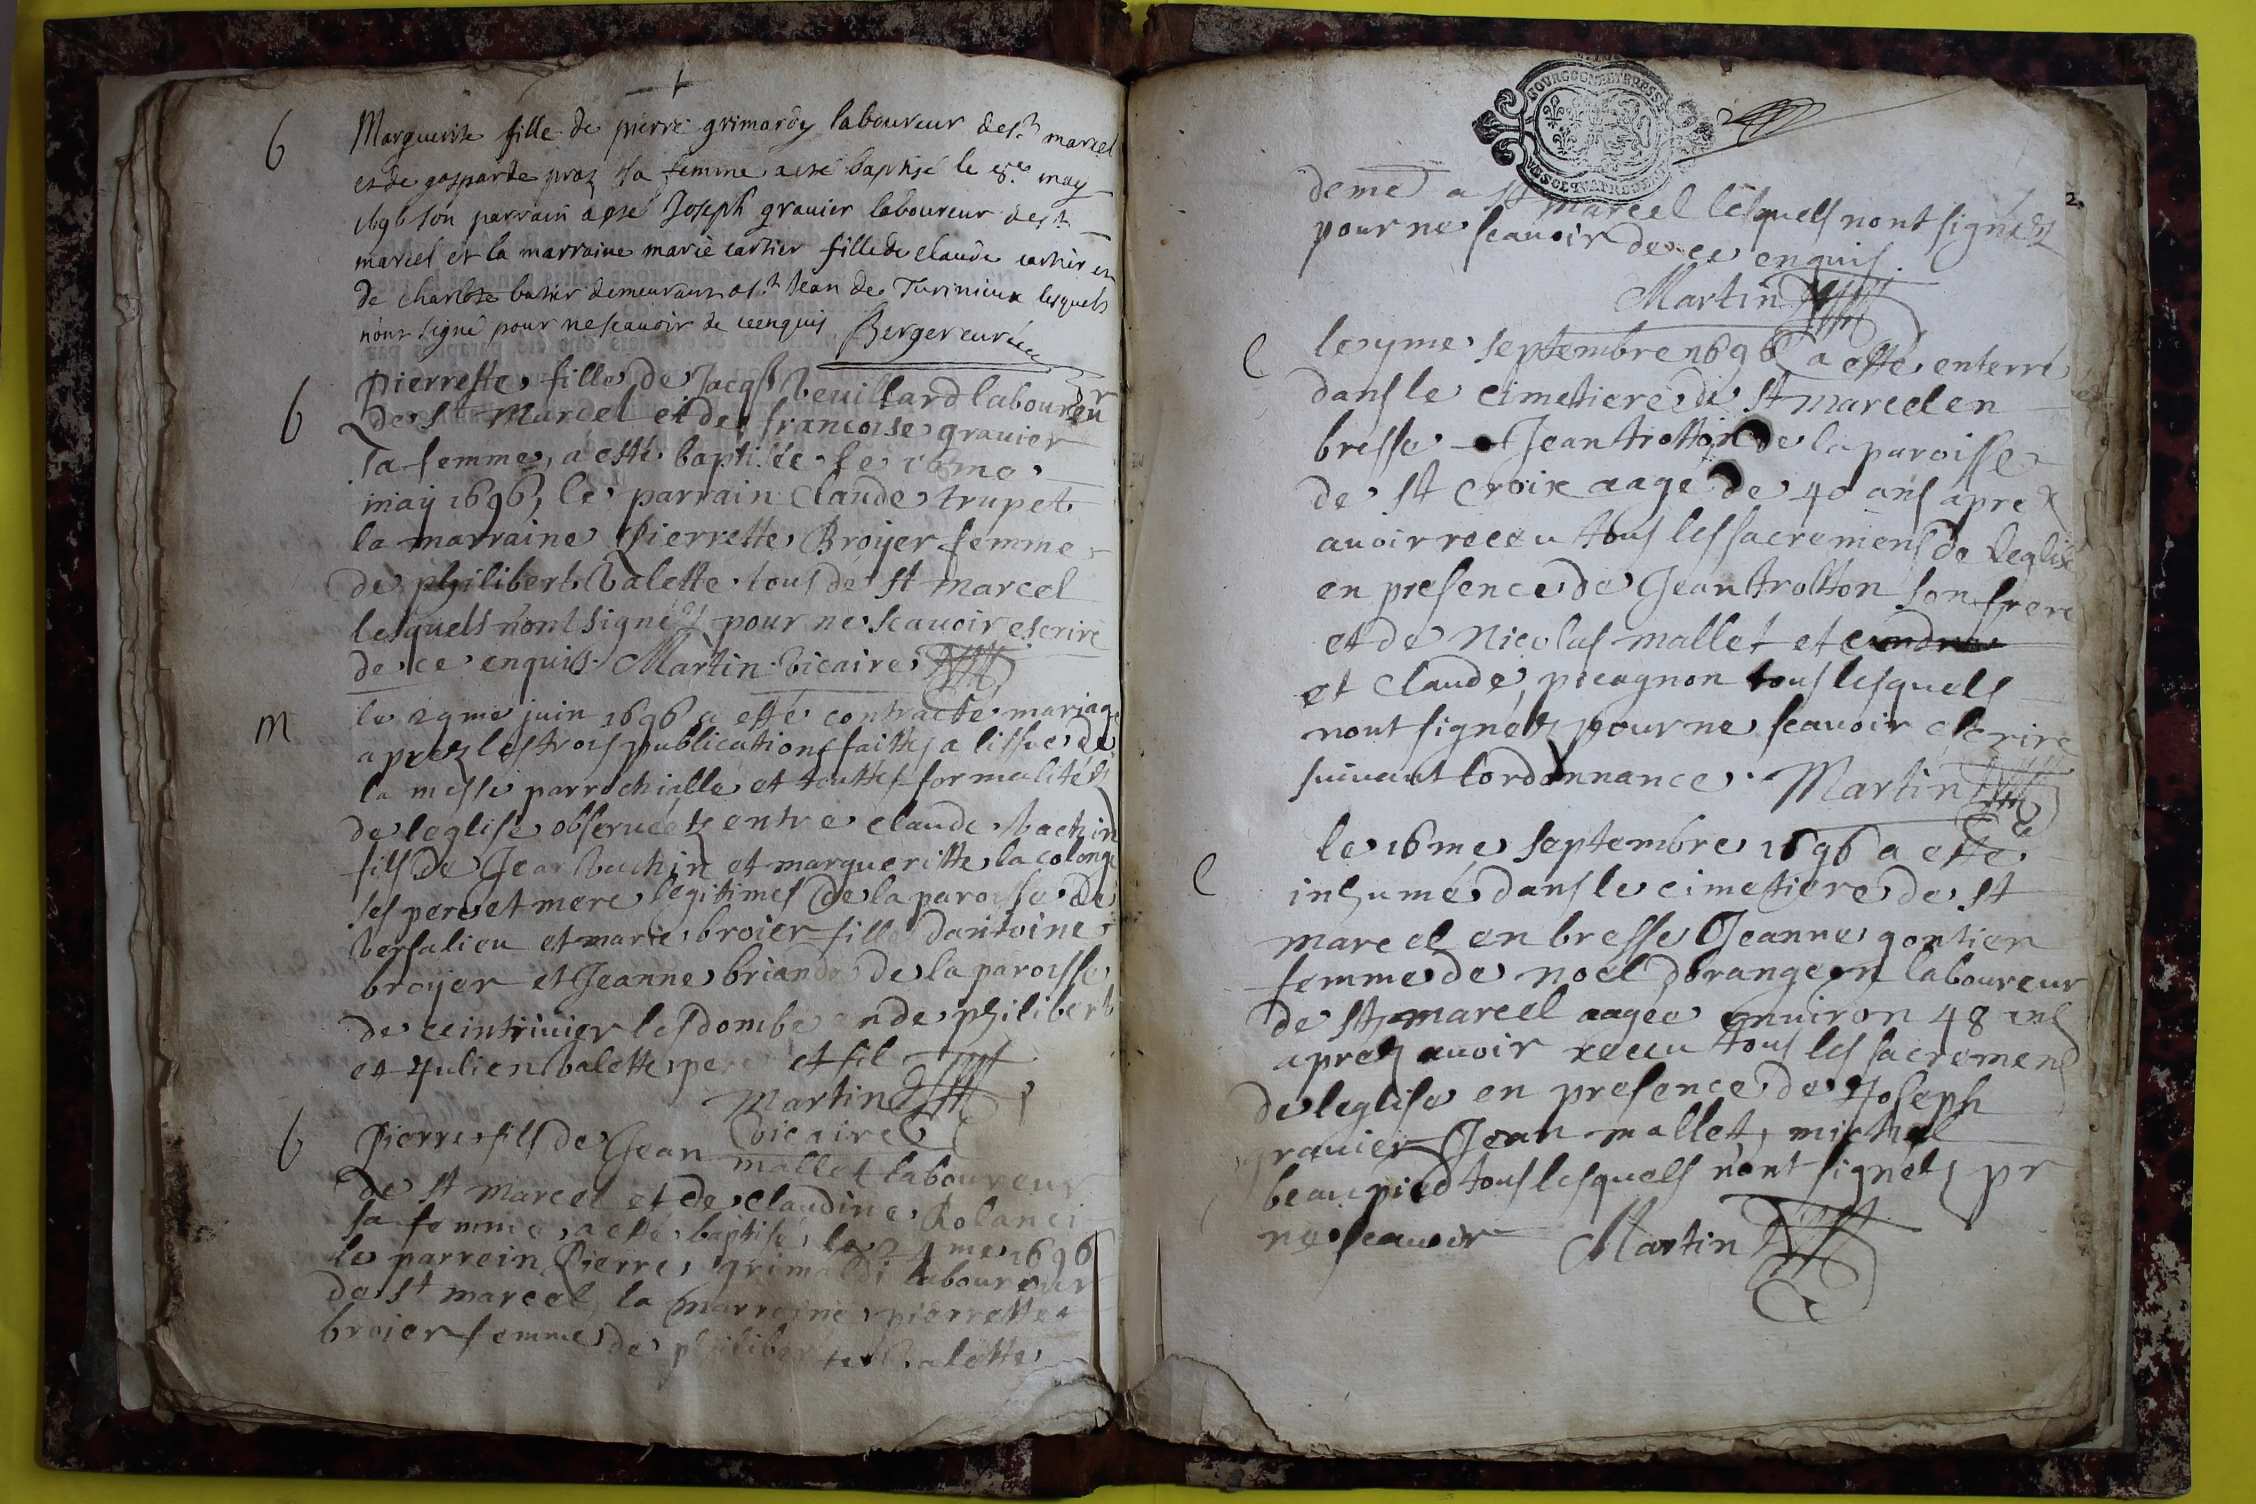 b
Marguerite fille de pierre grimardy laboureur de st marcel
et de gasparde praz sa femme a esté baptisé le 8e may
1696 son parrain a esté Joseph gravier laboureur de st
marcel et la marraine marie cartier fille de claude cartier et
de charlote batier demeurant a st Jean de Turinieux lesquels
n'ont signé pour ne scavoir de ce enquis Berger curé
b
pierrette fille de Jacqs Veuillard laboureur
de st Marcel et de francoise gravier
sa femme, a esté baptisée le 16me
may 1696, le parrain Claude trupet
la marraine Pierrette Broyer femme
de philibert Valette tous de st marcel
lesquels n'ont signéz pour ne scavoir escrire
de ce enquis. Martin vicaire
m
le 29me juin 1696 a esté contracté mariage
aprez les trois publications faittes a lissue de
la messe parrochialle et touttes formalitéz
de leglise observéez entre claude Vachin
fils de Jean Vachin et margueritte la colonge
ses pere et mere legitimes de la paroisse de
Versalieu et marie broier fille dantoine
broyer et Jeanne briande de la paroisse
de ceintrivier les dombe en de philibert
et Julien Valette pere et fil
Martin
vicaire
b
Pierre fils de Jean mallet laboureur
de st Marcel et de claudine Rolan
sa femme a esté baptisé le 24me 1696
le parrein Pierre grimaldi laboureur
de st marcel, la marraine pierrette
broier femme de philibert Valette
BOURGOGNE ET BRESSE
2.
deme a st marcel lesquels nont signéz
pour ne scavoir de ce enquis
Martin
e
le yme septembre 1696 a esté enterré
dans le cimetiere de st marcel en
bresse Jean trotton de la paroisse
de st croix aagé de 40 ans aprez
avoir receu tous les sacremens de leglise
en presence de Jean trotton son frere
et de Nicolas mallet et
et claude picagnon tous lesquels
nont signéz pour ne scavoir escrire
suivant lordonnance. Martin
e
le 16me septembre 1696 a esté
inhumé dans le cimetiere de st
marcel en bresse Jeanne gontier
femme de noel dorangeon laboureur
de st marcel aagée environ 48 ans
aprez avoir receu tous les sacremens
de leglise en presence de Joseph
gravier Jean mallet, michel
beaupied tous lesquels n'ont signéz pr
ne scavoir Martin